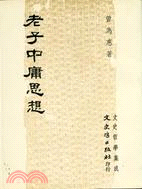 曾為惠著
老子中庸思想
文史哲學集成
文史哲出版社印行